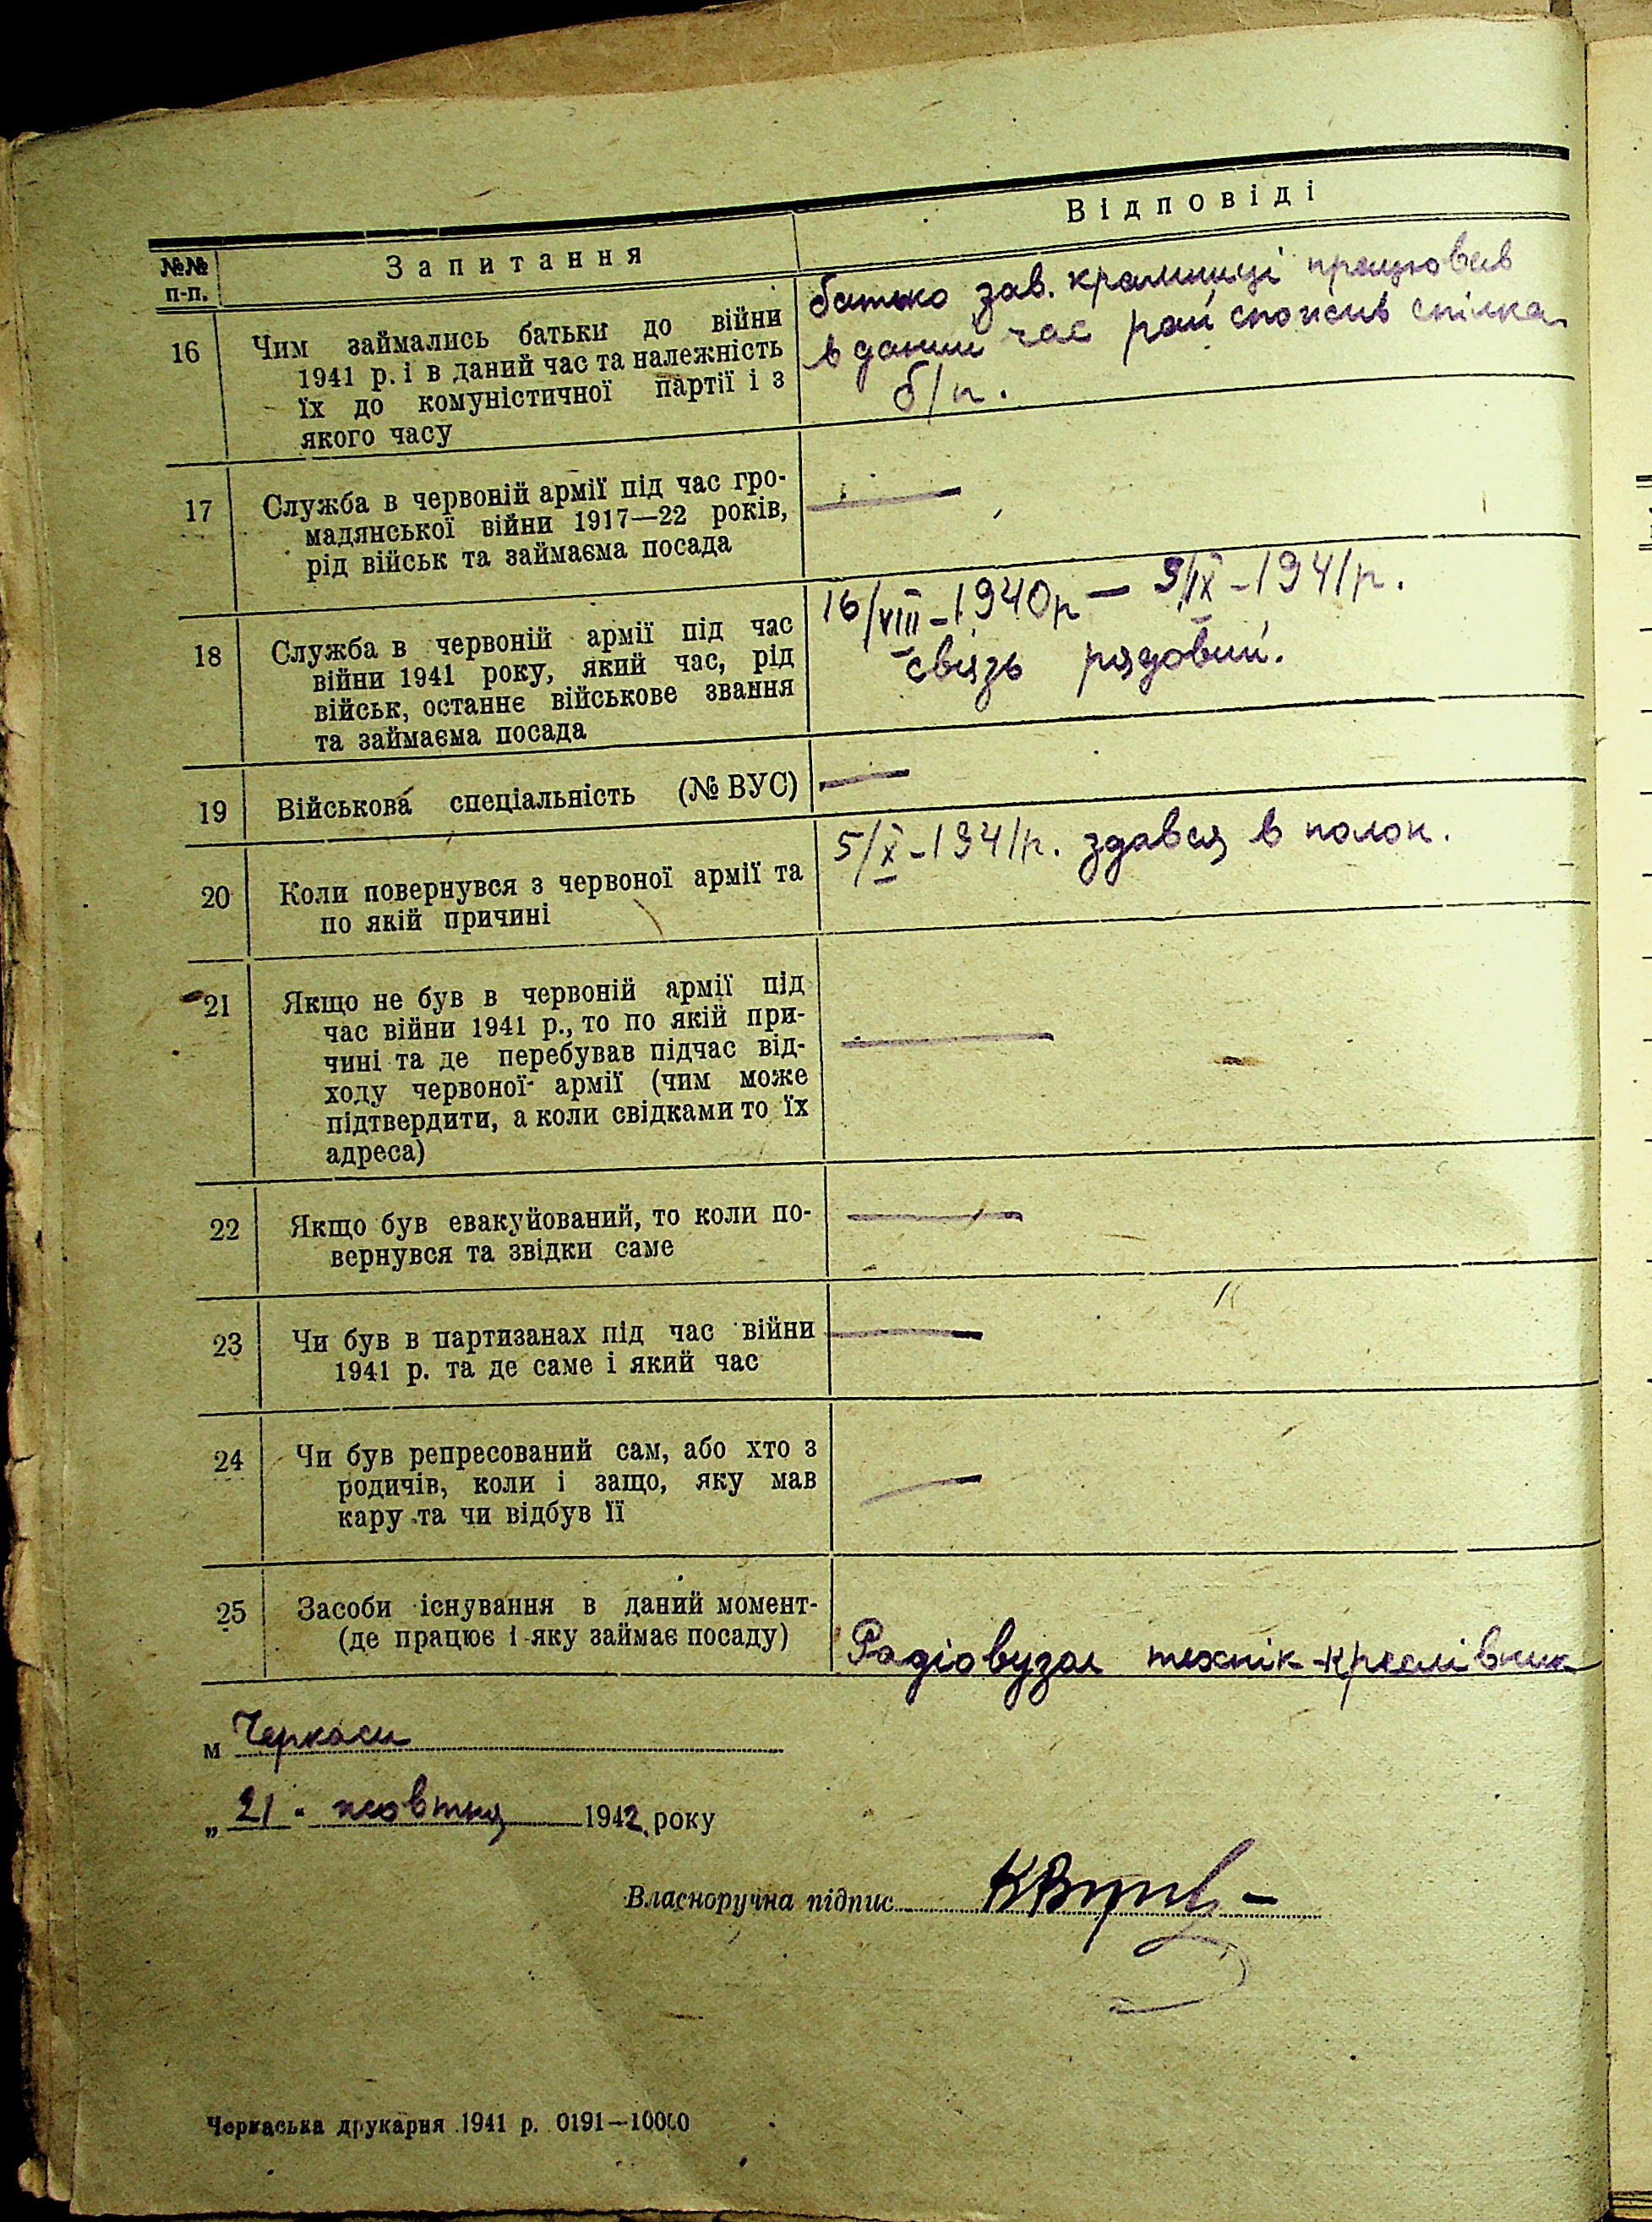 №№ п-п.
Запитання
Відповіді
16
Чим займались батьки до війни
1941 р. і в даний час та належність
їх до комуністичної партії і з
якого часу
батько зав. крамниці працював
в даний час рай спожив спілка
б/п.
17
Служба в червоній армії під час гро-
мадянської війни 1917—22 років,
рід військ та займаєма посада
—
18
Служба в червоній армії під час
війни 1941 року, який час, рід
військ, останнє військове звання
та займаєма посада
16/VIII-1940р — 5/IX-1941р.
связь рядовий.
19
Військова спеціальність (№ ВУС)
—
20
Коли повернувся з червоної армії та
по якій причині
5/X-1941р. здався в полон.
21
Якщо не був в червоній армії під
час війни 1941 р., то по якій при-
чині та де перебував підчас від-
ходу червоної армії (чим може
підтвердити, а коли свідками то їх
адреса)
—
22
Якщо був евакуйований, то коли по-
вернувся та звідки саме
—
23
Чи був в партизанах під час війни
1941 р. та де саме і який час
—
24
Чи був репресований сам, або хто з
родичів, коли і защо, яку мав
кару та чи відбув її
—
25
Засоби існування в даний момент-
(де працює і яку займає посаду)
Радіовузол технік-креслівник
м Черкаси
„21" жовтня 1942 року
Власноручна підпис
Черкаська друкарня 1941 р. 0191—10000